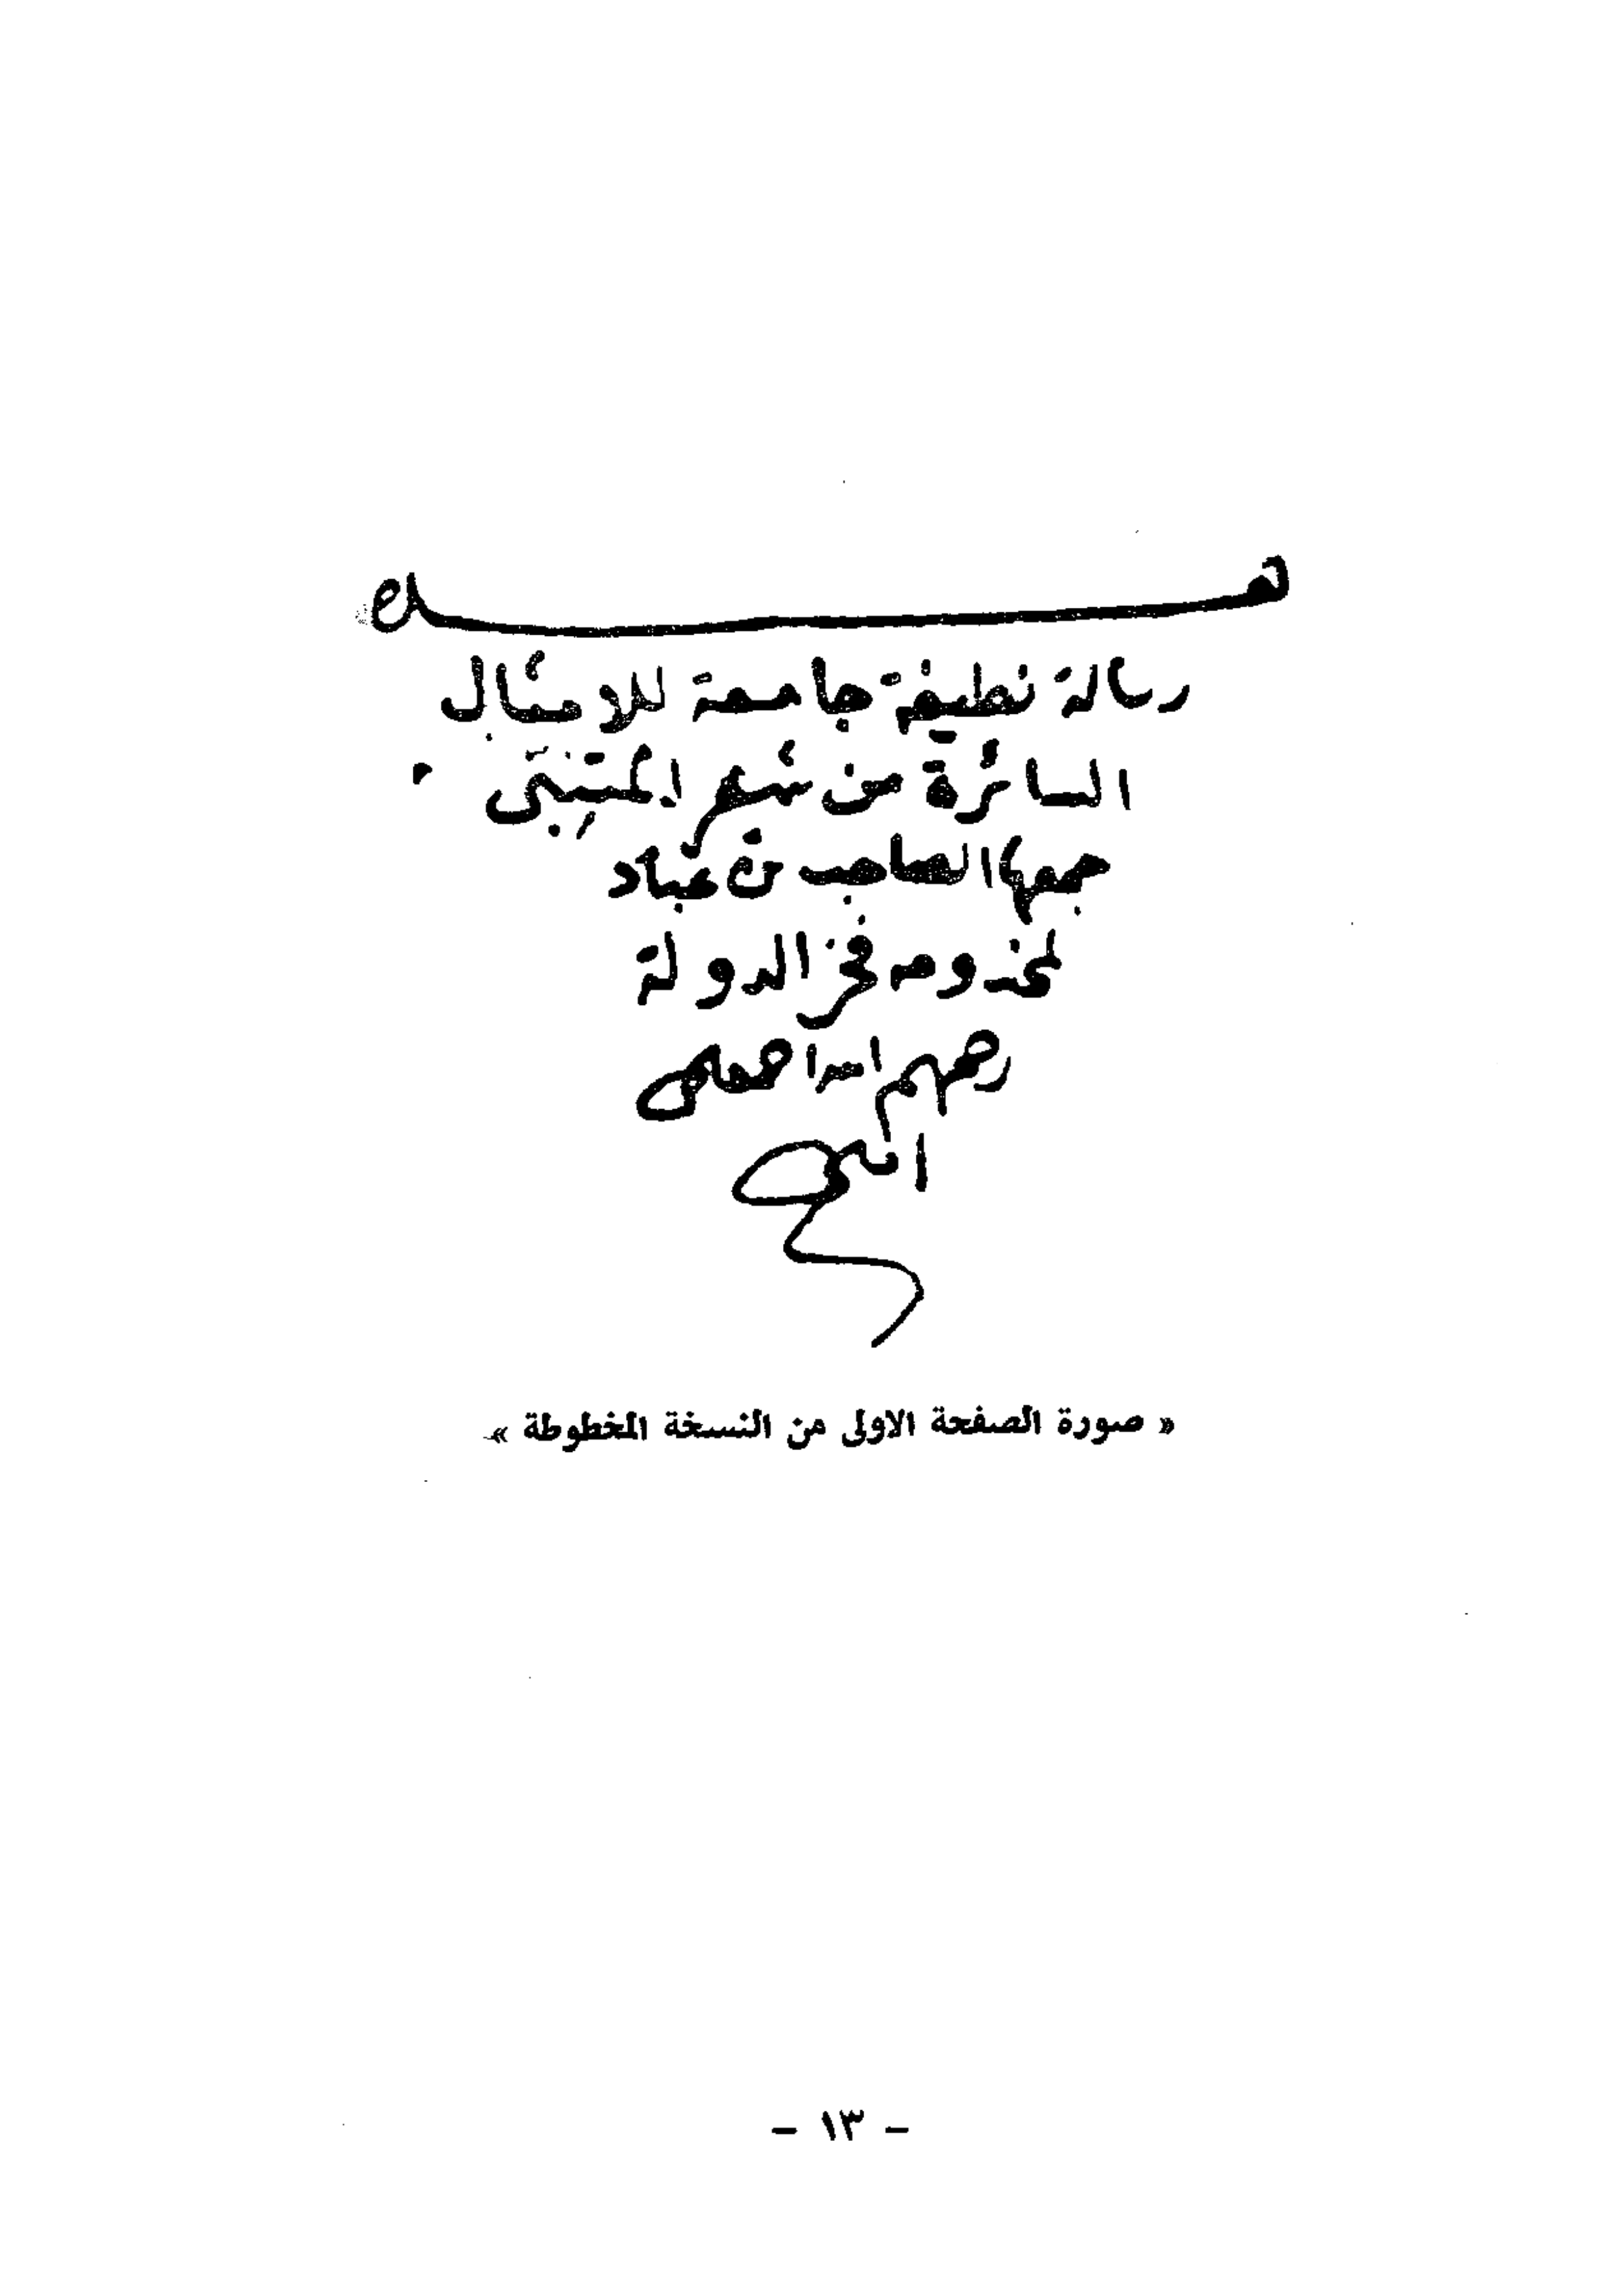 هـــــذه
رسالة نظيفة جامعة للامثال
السائرة من شعر المتنبّي
جمعها الصاحب بن عباد
لمخدومه فخر الدولة
رحمهم الله اجمعين
« صورة الصفحة الاولى من النسخة المخطوطة »
- ١٣ -